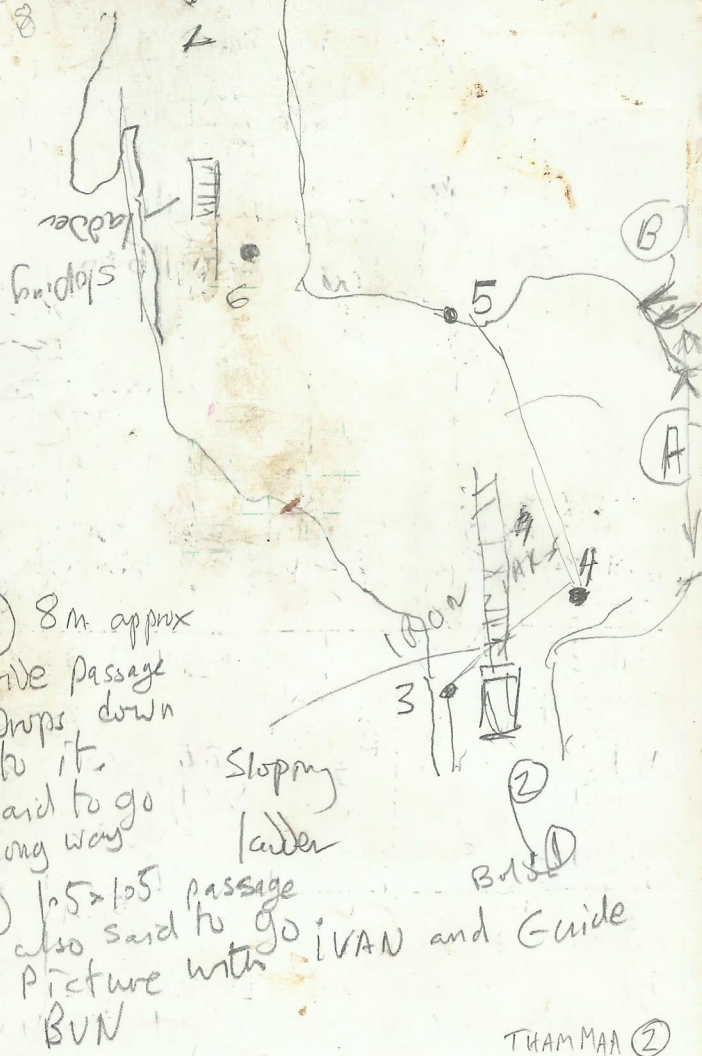 8
7
ladder
sloping
6
5
B
A
4
IRON
3
8m approx
Passage
Drops down
to it.
said to go
long way
Sloping
ladder
2
1
1.5x1.5 passage
also said to go
Picture with IVAN and Guide
BUN
THAM MAA 2